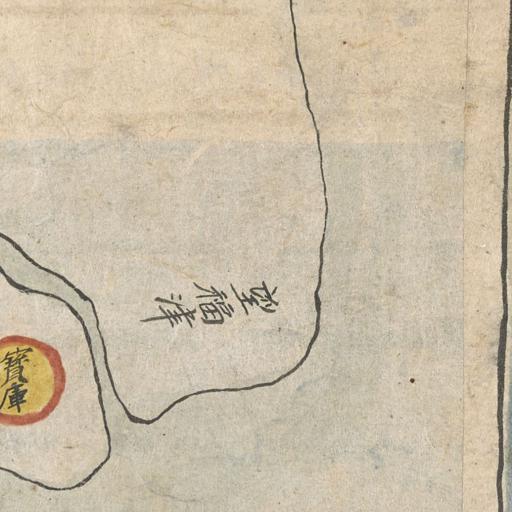 望福津
寶庫